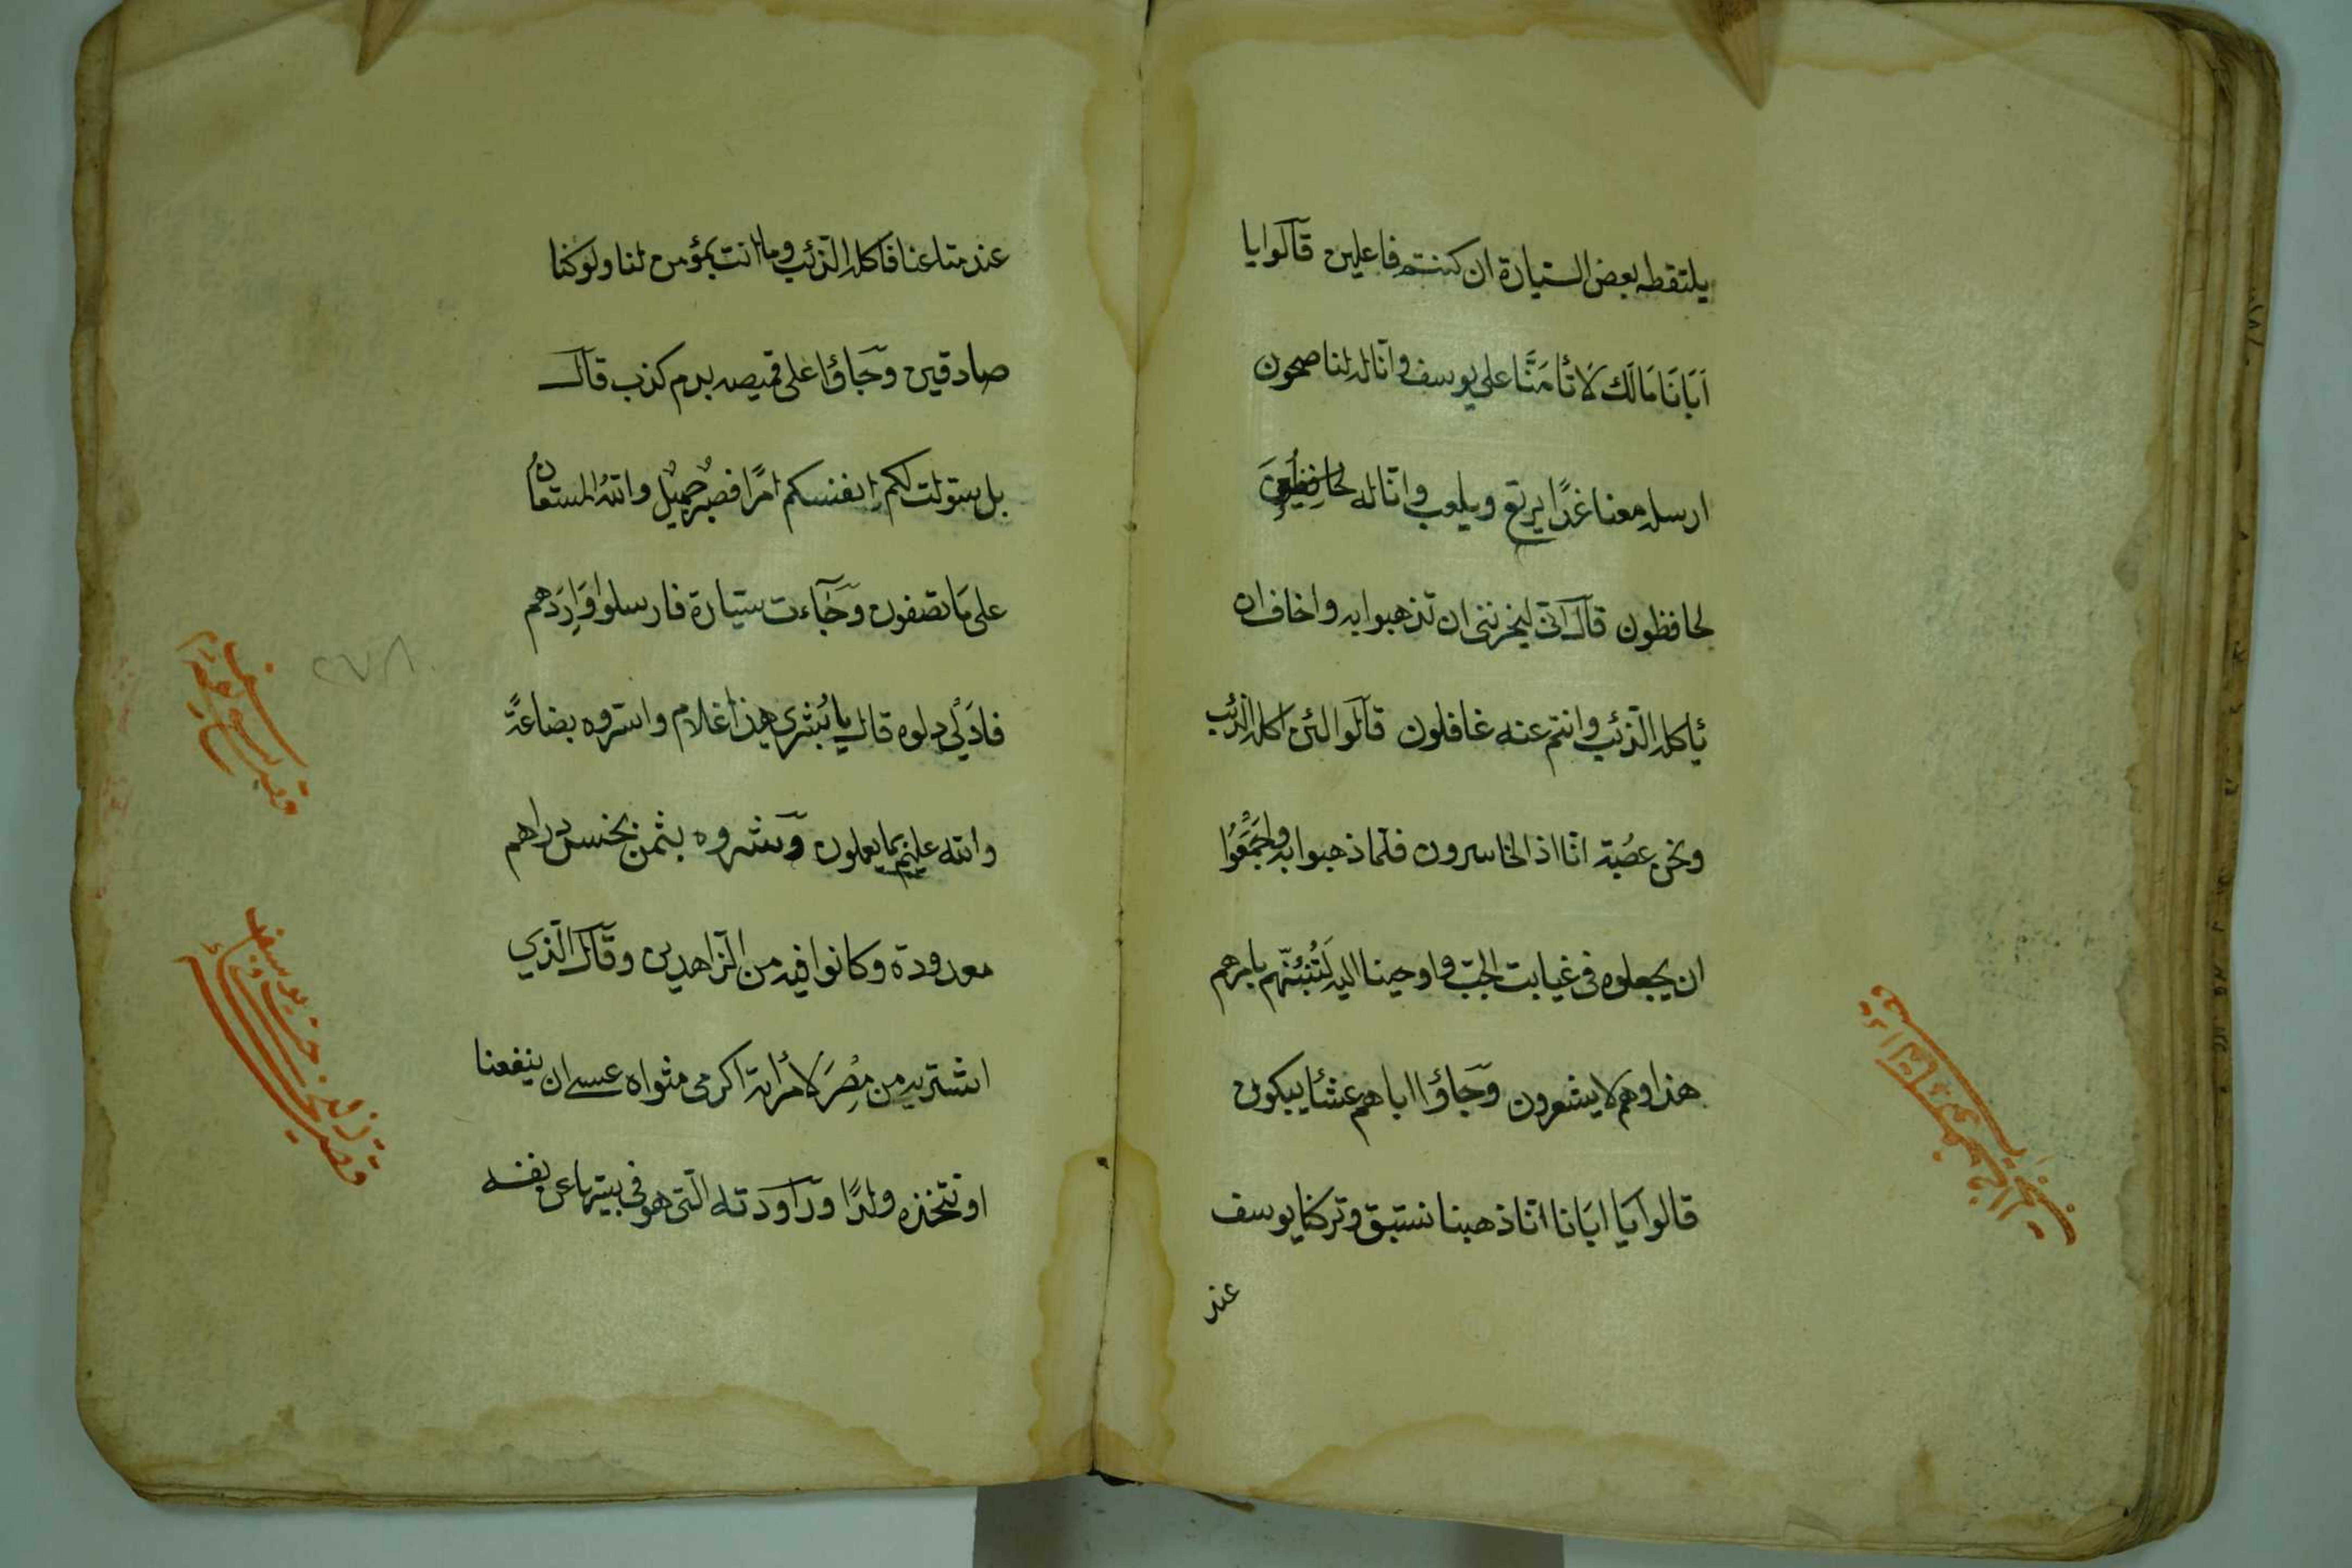 يلتقطه بعض السيارة ان كنتم فاعلين قالوا يا
اَبَانَا مَالَكَ لَا تَأْمَنَّا على يوسف وانا له لناصحون
ارسله معنا غدًا يرتع ويلعب وانا له
لحافظون قال انى ليحزننى ان تذهبوا به واخاف ان
يأكله الذئب وانتم عنه غافلون قالوا لئن اكله الذئب
ونحن عصُبة انا اذا لخاسرون فلما ذهبوا به واجمَعُوا
ان يجعلوه فى غيابت الجبّ واوحينا اليه لَتُنَبِّئَنَّهم بامرهم
هذا وهم لا يشعرون وَجَاؤا اباهم عشئا يبكون
قالوا يا ابَانا انا ذهبنا نستبق وتركنا يوسف
عند
عند متاعنا فاكله الذئب وما انت بمؤمن لنا ولو كنا
صادقين وَجَاؤا على قميصه بدم كذب قال
بل سولت لكم انفسكم امرًا فصبرٌ جميلٌ والله المستعانُ
على مَا تصفون وَجَاءت سيارة فارسلوا وَارِدَهم
فادَلٰى دلوه قال يا بُشرى هذا غلام واسروه بضاعةً
والله عليم بما يعملون وَشروه بثمن بخس دراهم
معدودة وكانوا فيه من الزاهدين وقال الذي
اشتريه من مِصْرَ لامْرأته اكرمى مثواه عسى ان ينفعنا
او نتخذه ولدًا ورَاوَدته التى هو فى بيتها عن نفسه